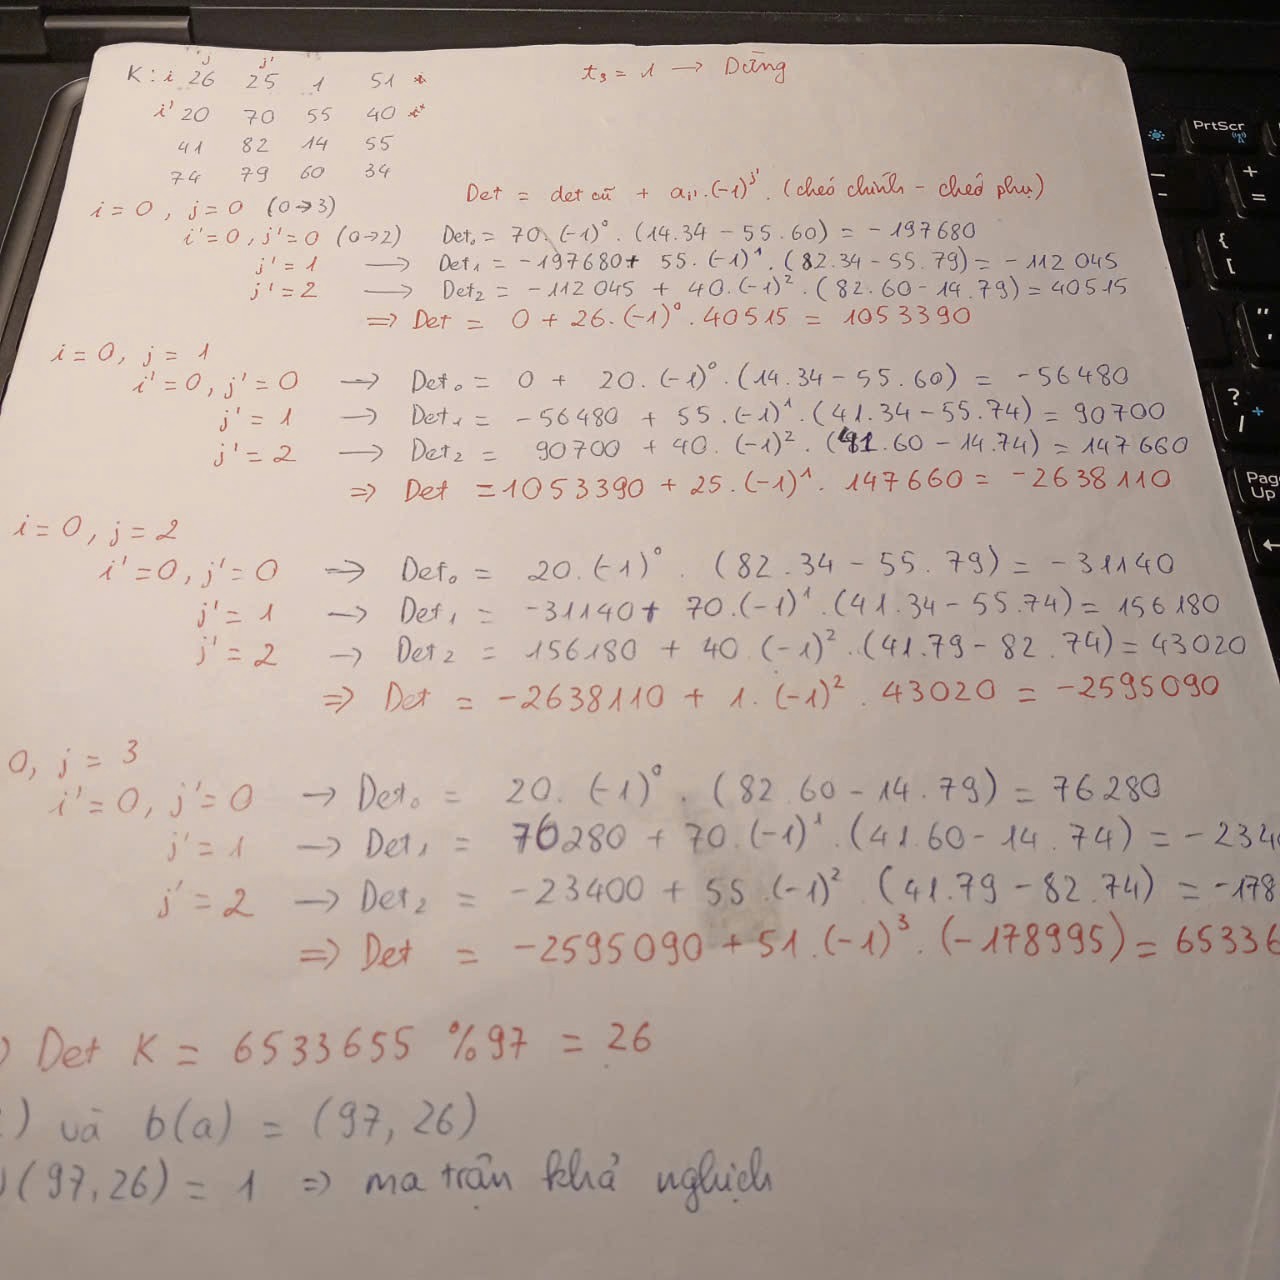 j j'
K : i 26 25 1 51 t₃ = 1 → Dừng
i' 20 70 55 40 i*
41 82 14 55
74 79 60 34
Det = det cũ + aᵢ,ⱼ.(-1)^j'. (chéo chính - chéo phụ)
i = 0, j = 0 (0→3)
i' = 0, j' = 0 (0→2) Det₀ = 70. (-1)⁰. (14.34 - 55.60) = -197680
j' = 1 → Det₁ = -197680 + 55. (-1)¹. (82.34 - 55.79) = -112 045
j' = 2 → Det₂ = -112 045 + 40. (-1)². (82.60 - 14.79) = 40515
=> Det = 0 + 26. (-1)⁰. 40515 = 1053390
i = 0, j = 1
i' = 0, j' = 0 → Det₀ = 0 + 20. (-1)⁰. (14.34 - 55.60) = -56480
j' = 1 → Det₁ = -56480 + 55. (-1)¹. (41.34 - 55.74) = 90700
j' = 2 → Det₂ = 90700 + 40. (-1)². (41.60 - 14.74) = 147660
=> Det = 1053390 + 25. (-1)¹. 147660 = -2638110
i = 0, j = 2
i' = 0, j' = 0 → Det₀ = 20. (-1)⁰. (82.34 - 55.79) = -31140
j' = 1 → Det₁ = -31140 + 70. (-1)¹. (41.34 - 55.74) = 156180
j' = 2 → Det₂ = 156180 + 40. (-1)². (41.79 - 82.74) = 43020
=> Det = -2638110 + 1. (-1)². 43020 = -2595090
0, j = 3
i' = 0, j' = 0 → Det₀ = 20. (-1)⁰. (82.60 - 14.79) = 76280
j' = 1 → Det₁ = 76280 + 70. (-1)¹. (41.60 - 14.74) = -234
j' = 2 → Det₂ = -23400 + 55. (-1)² (41.79 - 82.74) = -178
=> Det = -2595090 + 51. (-1)³. (-178995) = 65336
) Det K = 6533655 %97 = 26
) và b(a) = (97, 26)
(97, 26) = 1 => ma trận khả nghịch
PrtScr
Page Up